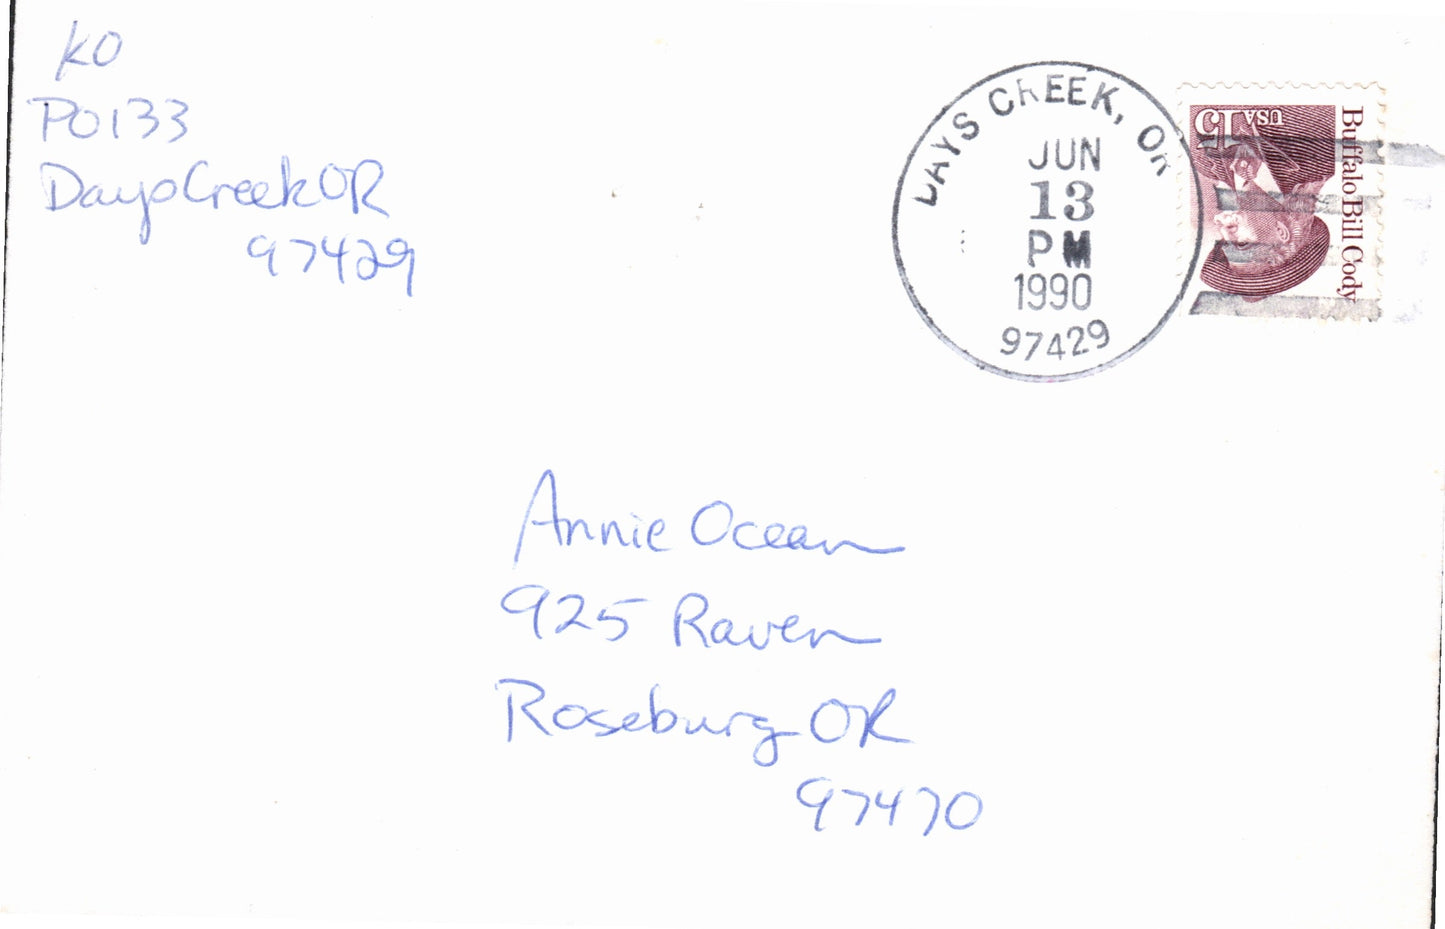 KO
PO 133
Days Creek OR
97429
DAYS CREEK, OR
JUN
13
PM
1990
97429
USA 15
Buffalo Bill Cody
Annie Ocean
925 Raven
Roseburg OR
97470